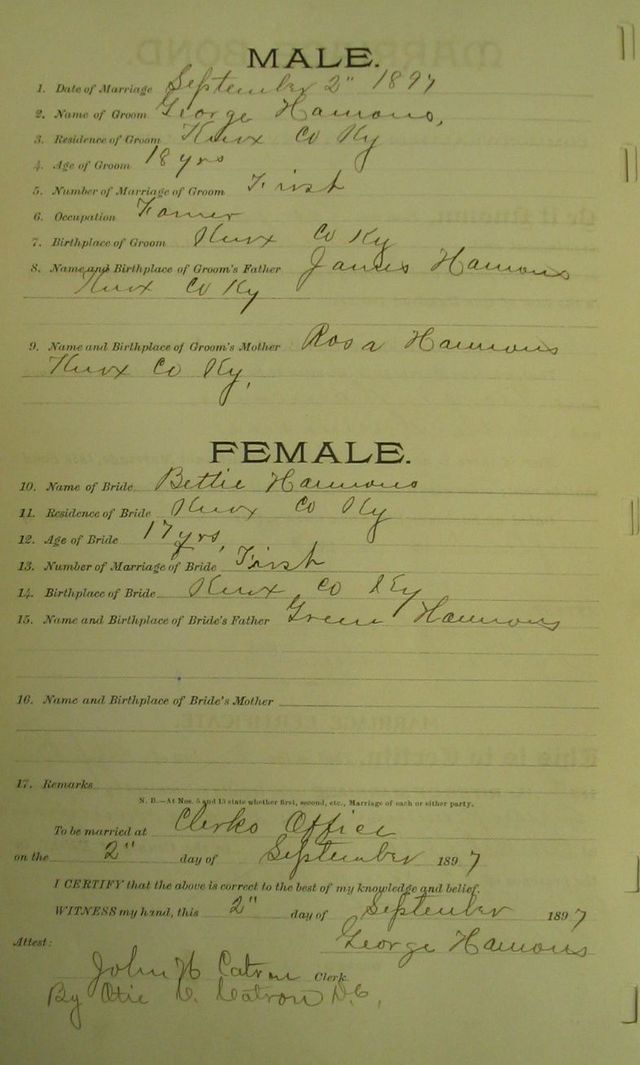 MALE.
1. Date of Marriage September 2" 1897
2. Name of Groom George Hamons,
3. Residence of Groom Knox Co Ky
4. Age of Groom 18 yrs
5. Number of Marriage of Groom First
6. Occupation Farmer
7. Birthplace of Groom Knox Co Ky
8. Name and Birthplace of Groom's Father James Hamons
Knox Co Ky
9. Name and Birthplace of Groom's Mother Rosa Hammons
Knox Co Ky,
FEMALE.
10. Name of Bride Bettie Hammons
11. Residence of Bride Knox Co Ky
12. Age of Bride 17 yrs,
13. Number of Marriage of Bride First
14. Birthplace of Bride Knox Co Ky
15. Name and Birthplace of Bride's Father Green Hammons
16. Name and Birthplace of Bride's Mother
17. Remarks
N. B.—At Nos. 5 and 13 state whether first, second, etc., Marriage of each or either party.
To be married at Clerks Office
on the 2" day of September 1897
I CERTIFY that the above is correct to the best of my knowledge and belief.
WITNESS my hand, this 2" day of September 1897
George Hamons
Attest:
John H Catron Clerk
By Otis Catron D.C,